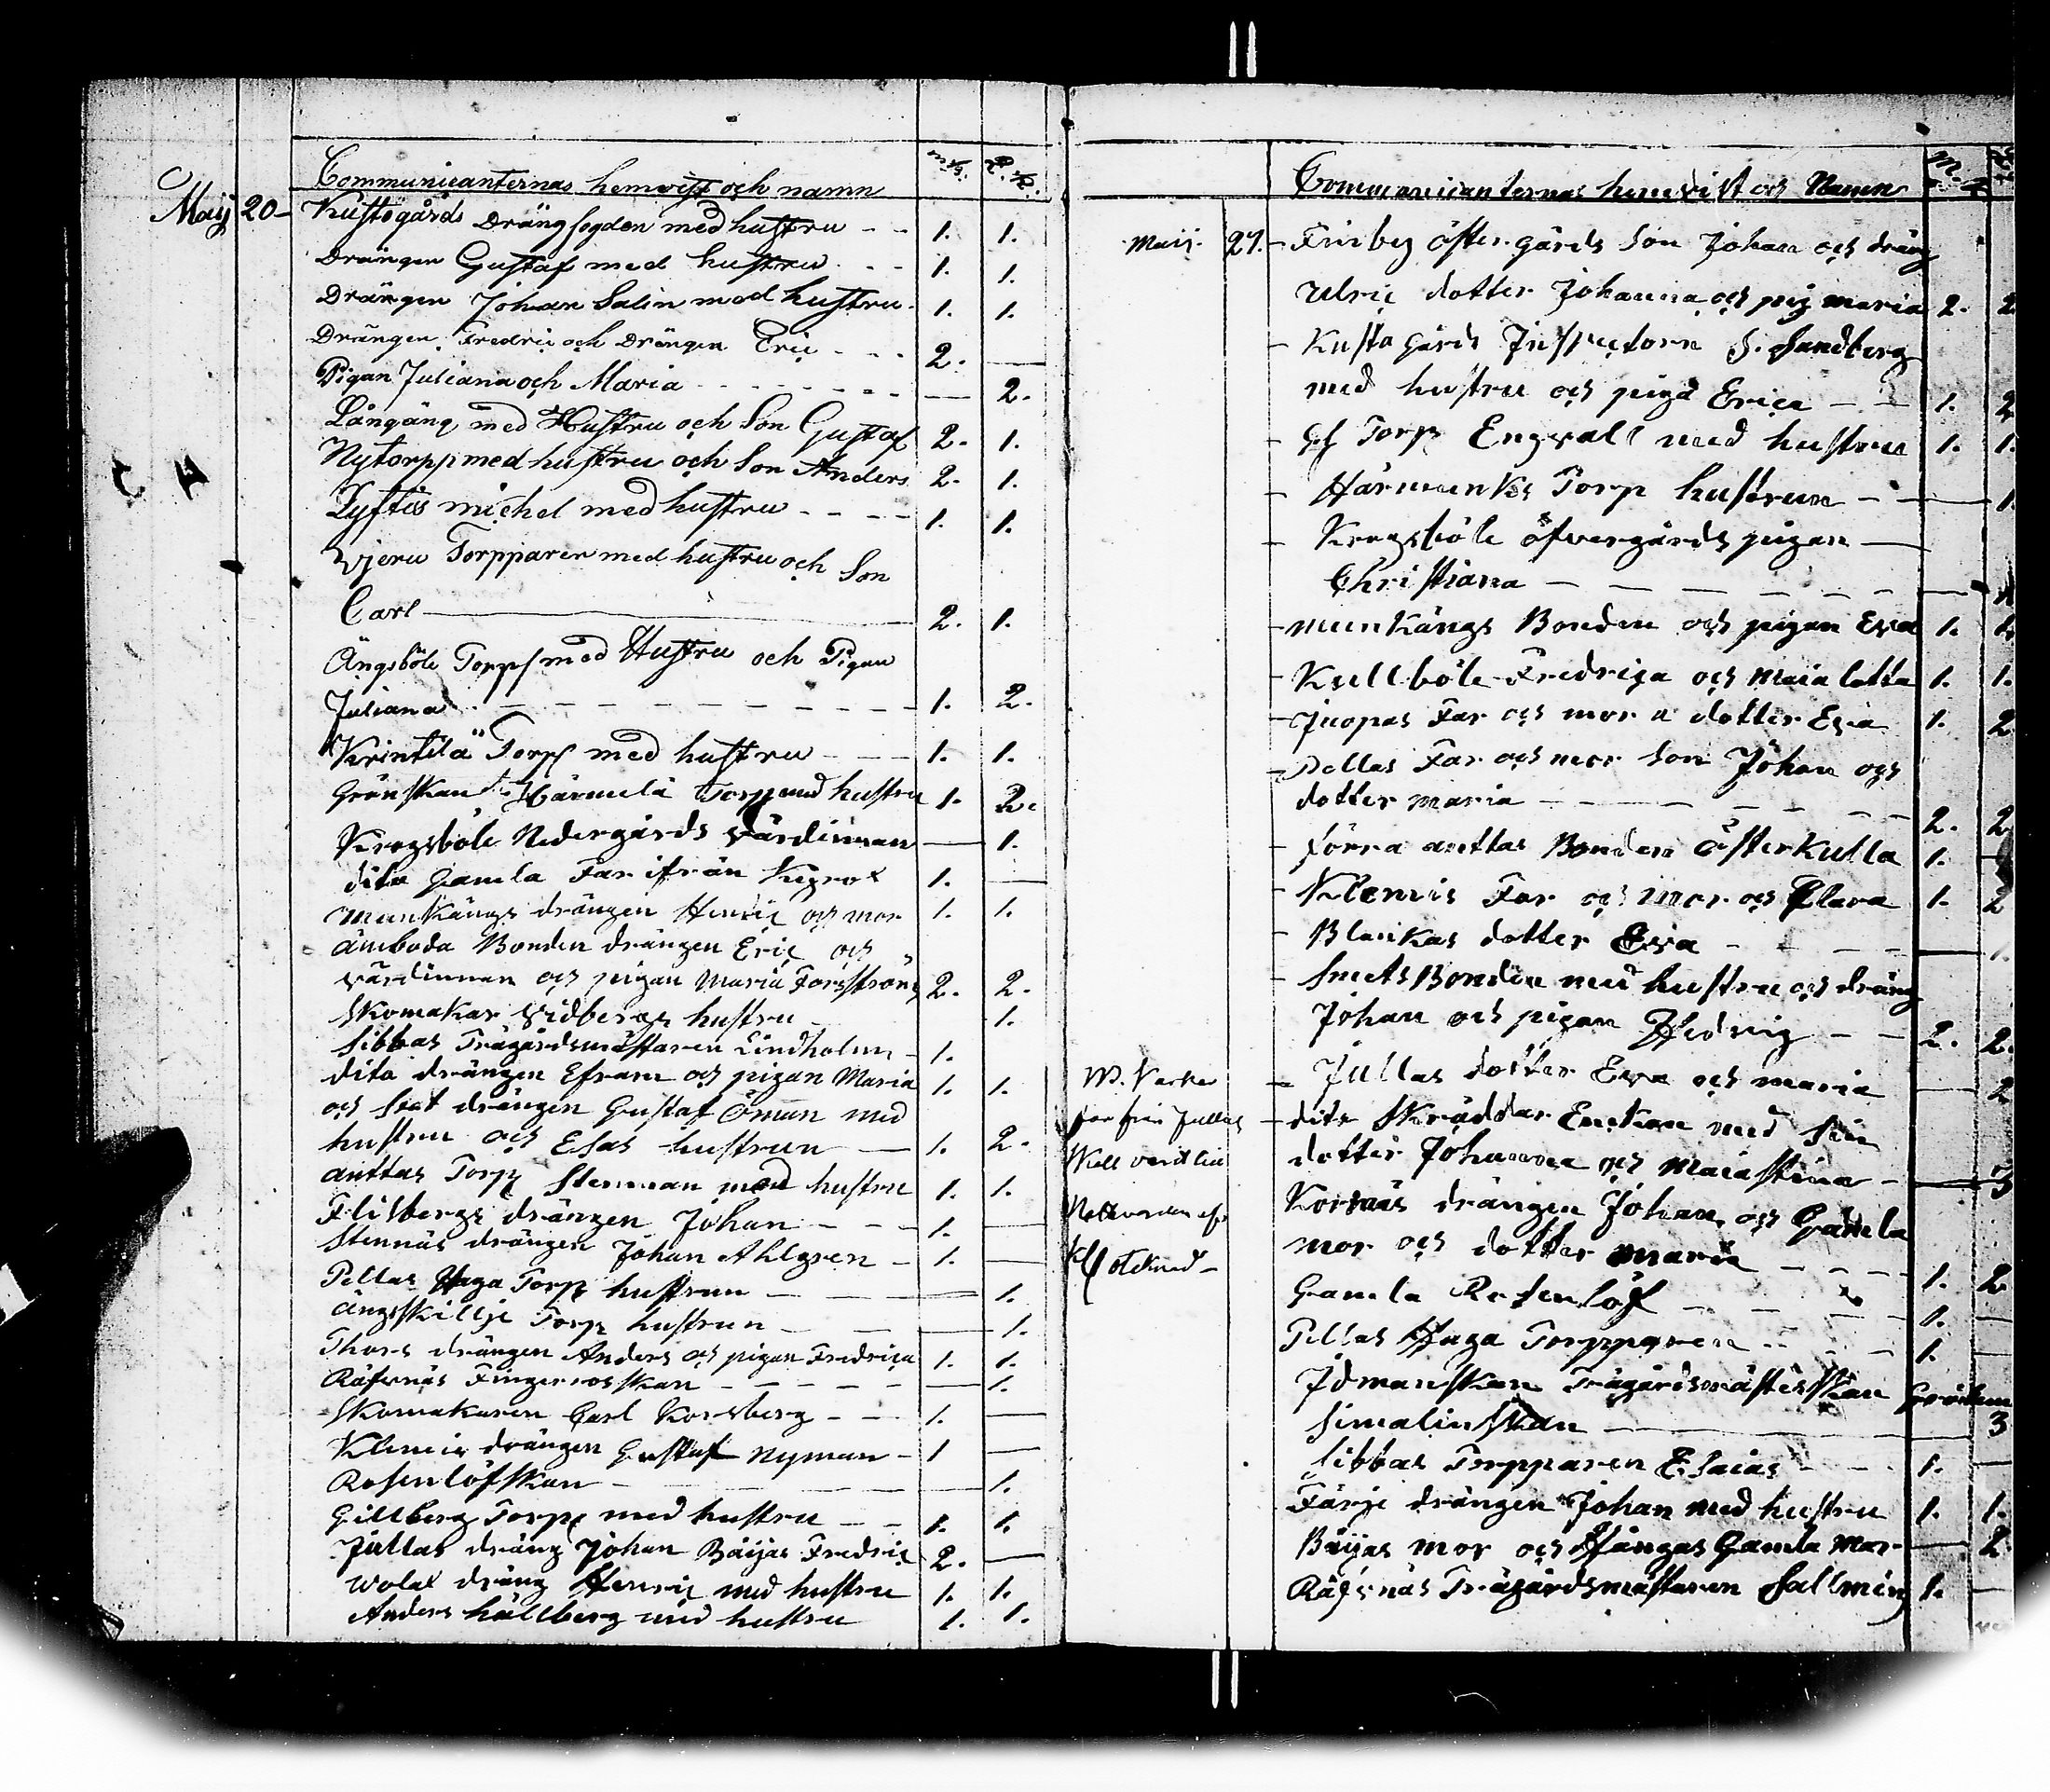 Communicanternas hemvist och namn
Maij 20 - Kustogårds Drängfogden med hustru - - 1. 1.
Drängen Gustaf med hustru - - 1. 1.
Drängen Johan Salin med hustru. 1. 1.
Drängen Fredric och Drängen Eric - - - 2. —
Pigan Juliana och Maria - - - - - - — 2.
Långäng med Hustru och Son Gustaf 2. 1.
Nytorpp med hustru och Son Anders 2. 1.
michel med hustru - - - - 1. 1.
Torpparen med hustru och Son
Carl — 2. 1.
Ängsböle Torpp med Hustru och Pigan
Juliana - - - - - - - - 1. 2.
Krintilä Torpp med hustru - - - 1. 1.
Grönskan Härmälä Torp med hustru 1. 2.
Krogsböle Nedergårds värdinnan — 1.
dito Gamla Far ifrån 1. —
Munkängs drängen Henric och mor 1. 1.
ämboda Bonden drängen Eric och
värdinnan och pigan Maria Forsström 2. 2.
Skomakar Widbergs hustru 1.
Sibbas Trägårdsmästaren Lindholm - 1.
dito drängen Efram och pigan Maria 1. 1.
och drängen Gustaf Öman med
hustru och Esas hustrun — 1. 2.
anttas Torp Stenman med hustru 1. 1.
Flisbergs drängen Johan - - - 1.
Stennäs drängen Johan Ahlgren - 1. —
Pellas Haga Torp hustrun - — 1.
ängsskillje Torp hustrun - — 1.
Thors drängen Anders och pigan Fredrica 1. 1.
Räfsnäs Fingerrosskan - - - - — 1.
Skomakaren Carl Korsberg - - 1. —
Klemis drängen Gustaf Nyman - 1 —
Rosenlöfskan - — 1.
Gillberg Torp med hustru - - 1. 1.
Jullas dräng Johan Böijas Fredric 2. —
dräng Henric med hustru 1. 1.
Anders hällberg med hustru 1. 1.
Communicanternas hemvist och Namn
Maij. 27. - Finby östergårds Son Johan och dräng
Ulric dotter Johanna och pig maria 2. 2
- Kusto Gårds Inspectorn S. Sandberg
med hustru och piga Erica - - 1. 2
- Torp Engvall med hustru 1. 1.
- Torp hustrun - — 1.
- Krogsböle öfvergårds pigan —
Christiana - - - - - -
- munkängs Bonden och pigan Eva 1.
- Kullböle Fredrica och maia lotta 1. 1.
- Far och mor dotter Eva 1. 2
- Pellas Far och mor Son Johan och
dotter maria - - - - - 2. 2
- förra anttas Bonden Österkulla 1. —
- Klemis Far och mor och Clara 1. 2
- Blankas dotter Eva - - - — 1.
- Smeds Bonden med hustru och dräng
Johan och pigan Hedvig - - 2. 2.
- Jullas dotter Eva och maria — 2
- dito Skräddar med sin
dotter Johanna och Maiastina - — 3
Kornäs drängen Johan och Gamla
mor och dotter maria - - - 1. 2
Gamla Rosenlöf - - - 1. —
Pellas Haga Torpparen - - - 1. —
Idmanskan Trägårdsmästerskan
Simalinskan — 3
Sibbas Torpparen Esaias - - 1. —
Färje drängen Johan med hustru 1. 1.
Böijas mor och Hångas Gamla Mor — 2
Räfsnäs Trägårdsmästaren Sallmén 1. —